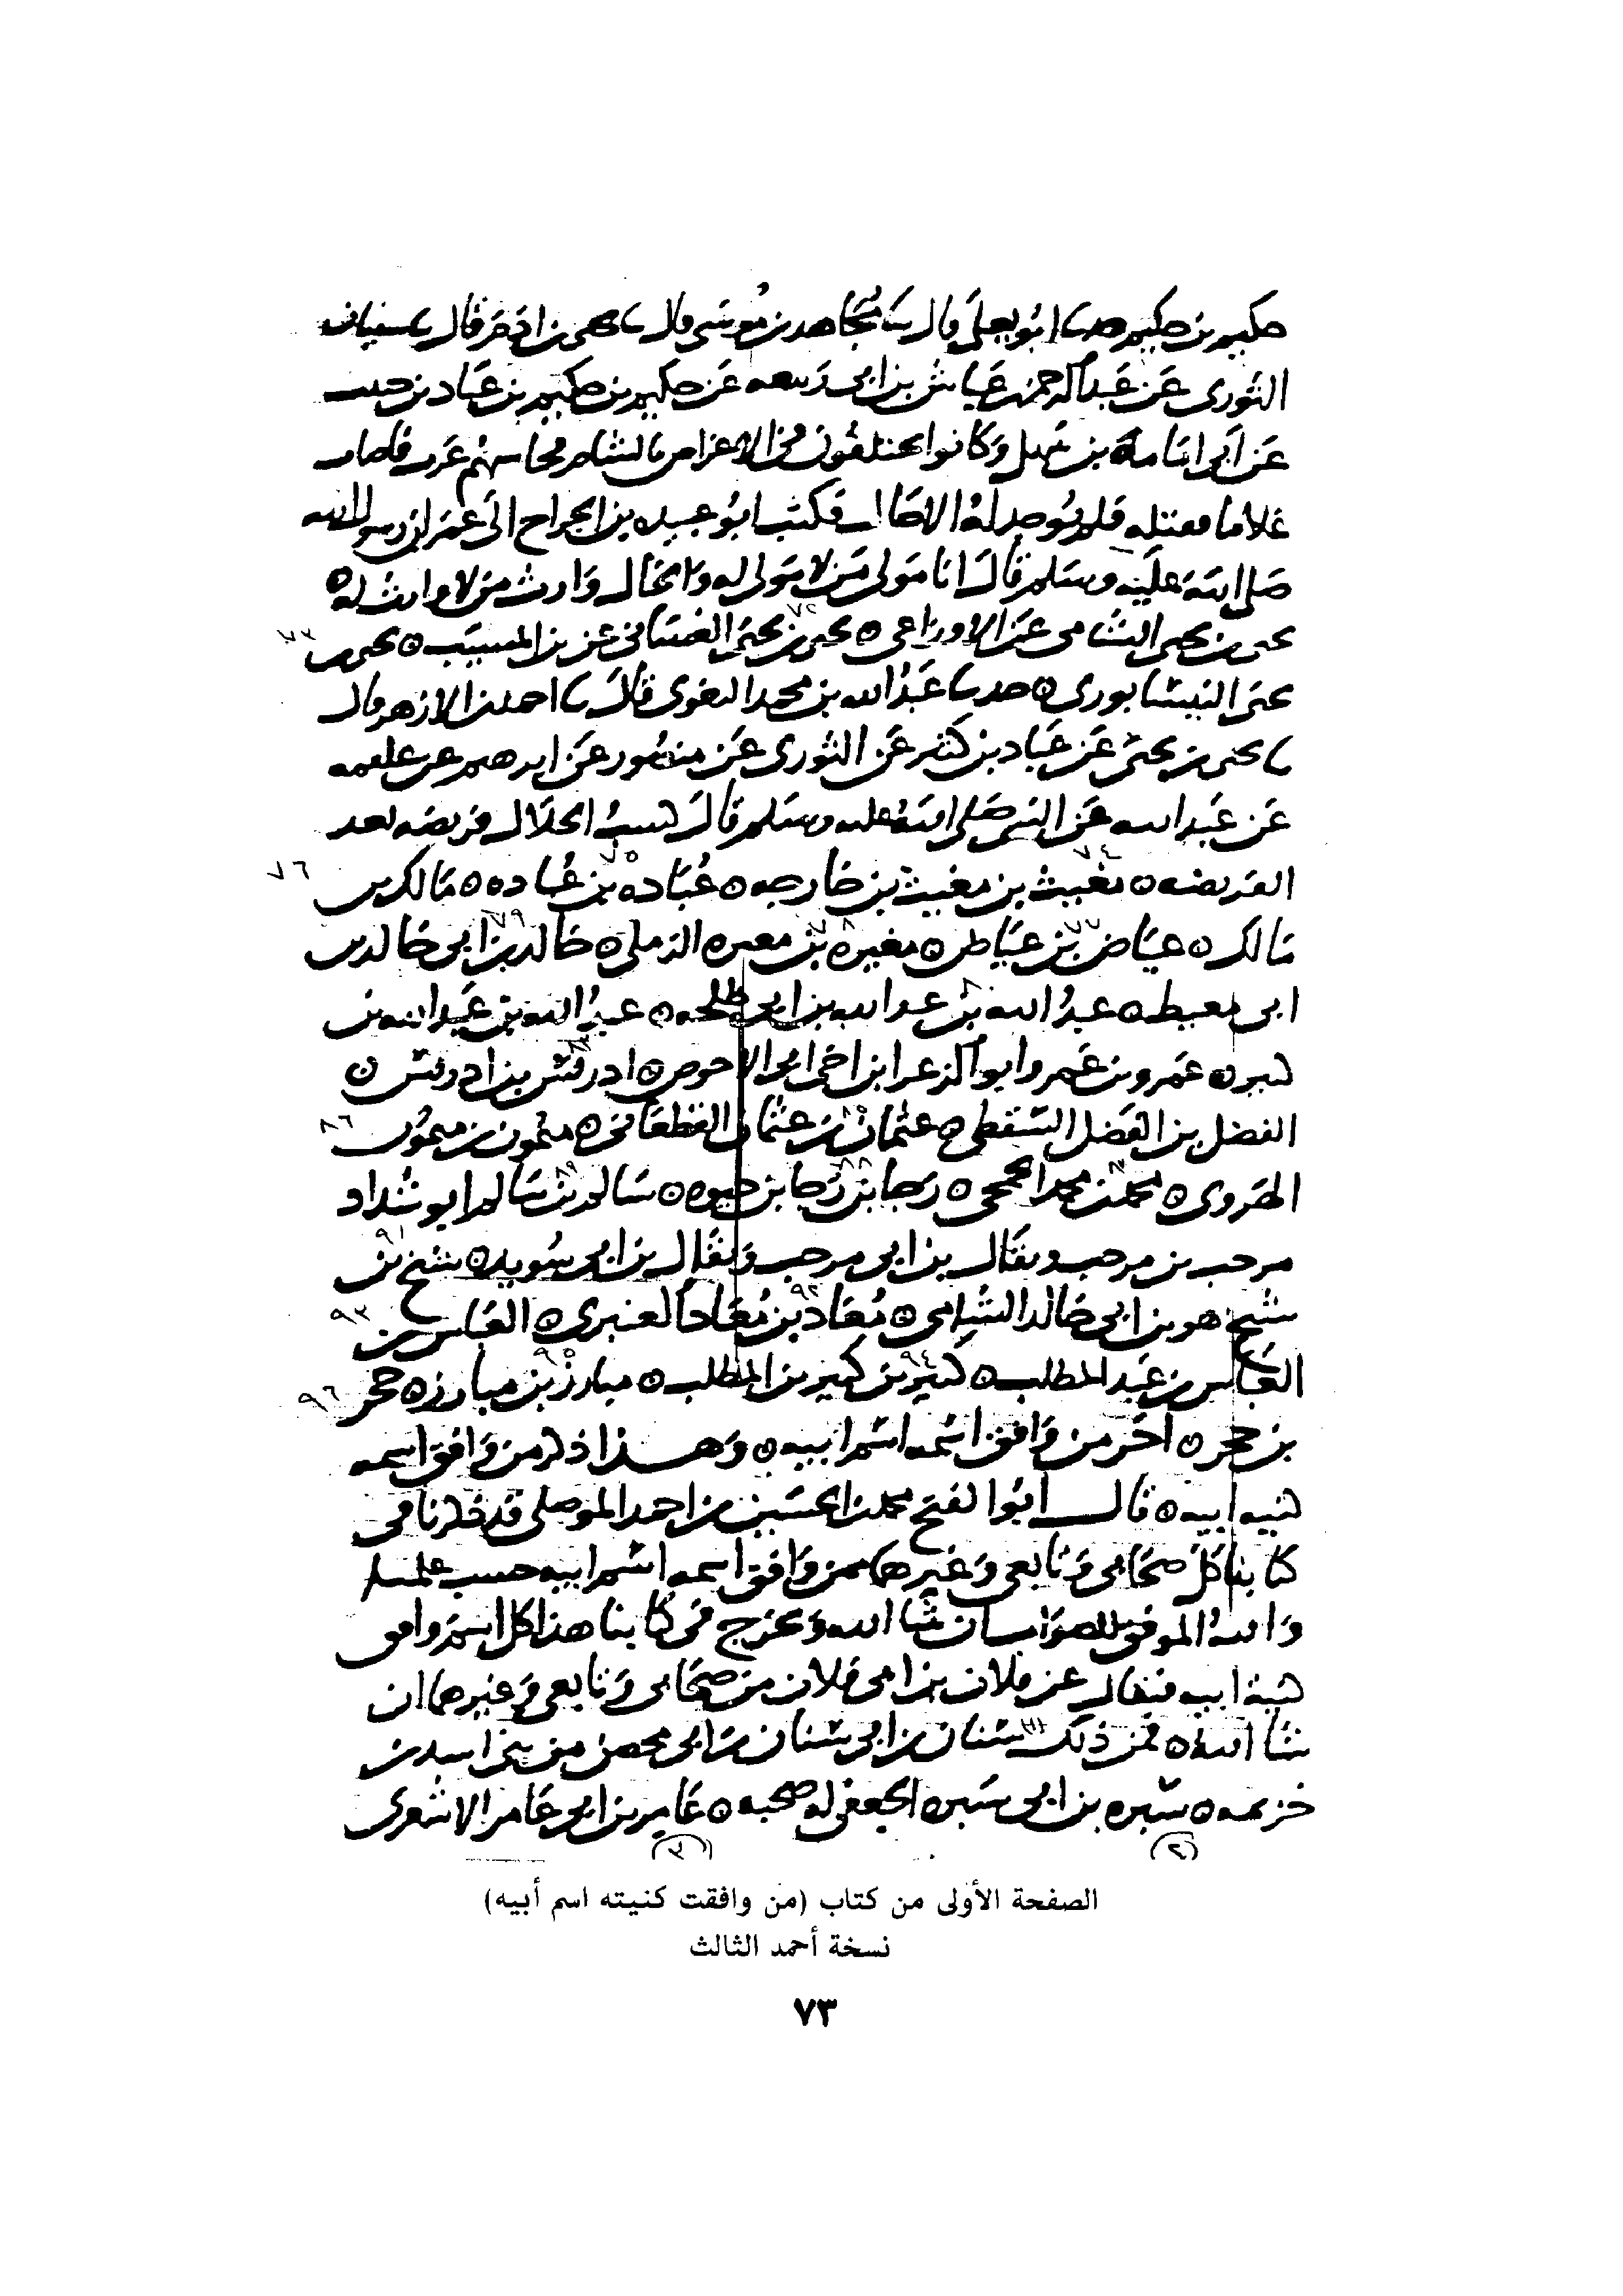 حكيم بن حكيم حدثنا ابو يعلى قال ثنا مجاهد بن موسى قال ثنا يحيى بن ادم قال ثنا سفيان
الثوري عن عبد الرحمن عياش بن ابي ربيعه عن حكيم بن حكيم بن عباد بن حنيف
عن ابي امامة بن سهل وكانوا يختلفون في الاعراض بالشام فجا سهم غرب فاصاب
غلاما فقتله فلم يوجد له الا خال فكتب ابو عبيده بن الجراح الى عمر ان رسول الله
صلى الله عليه وسلم قال انا مولى من لا مولى له والخال وارث من لا وارث له ه
يحيى بن يحيى الشامي عن الاوزاعي ه يحيى بن يحيى الغساني عن بن المسيب ه يحيى بن
يحيى النيسابوري ه حدثنا عبد الله بن محمد البغوي قال ثنا احمد بن الازهر قال
ثنا يحيى بن يحيى عن عباد بن كثير عن الثوري عن منصور عن ابرهيم عن علقمه
عن عبد الله عن النبي صلى الله عليه وسلم قال كسب الحلال فريضه بعد
الفريضه ه مغيث بن مغيث بن خارجه ه عباده بن عباده ه مالك بن
مالك ه عياض بن عياض ه مغيره بن مغيره الرملي ه خالد بن ابي خالد بن
ابي معيط ه عبد الله بن عبد الله بن ابي طلحه ه عبد الله بن عبد الله بن
عمرو بن عمرو ابو الزعرا ابن اخي ابي الاحوص ه ادريس بن ادريس ه
الفضل بن الفضل السقطي ه عثمان بن عثمان الغطفاني ه ميمون بن ميمون
الهروي ه محمد بن محمد الجمحي ه رجا بن رجا بن حيوه ه سالم بن سالم ابو شداد
مرحب بن مرحب ويقال بن ابي مرحب ويقال بن ابي سويد ه شيخ بن
شيخ هو بن ابي خالد الشامي ه معاذ بن معاذ العنبري ه العباس بن
العباس بن عبد المطلب ه كثير بن كثير بن المطلب ه مبارز بن مبارز ه حجر
بن حجر ه اخر من وافق اسمه اسم ابيه ه وهذا ذكر من وافق اسمه
كنيه ابيه ه قال ابو الفتح محمد بن الحسين بن احمد الموصلي قد ذكرنا في
كتابنا كل صحابي وتابعي وغيرهما ممن وافق اسمه اسم ابيه حسب علمنا
والله الموفق للصواب ان شا الله ونخرج في كتابنا هذا كل اسم وافق
كنية ابيه فيقال عن فلان بن ابي فلان من صحابي وتابعي وغيرهما ان
شا الله ه فمن ذلك سنان بن ابي سنان بن ابي محصن من بني اسد بن
خزيمه ه سبره بن ابي سبره الجعفي له صحبه ه عامر بن ابي عامر الاشعري
(٢) (٣)
الصفحة الأولى من كتاب (من وافقت كنيته اسم أبيه)
نسخة أحمد الثالث
٧٣